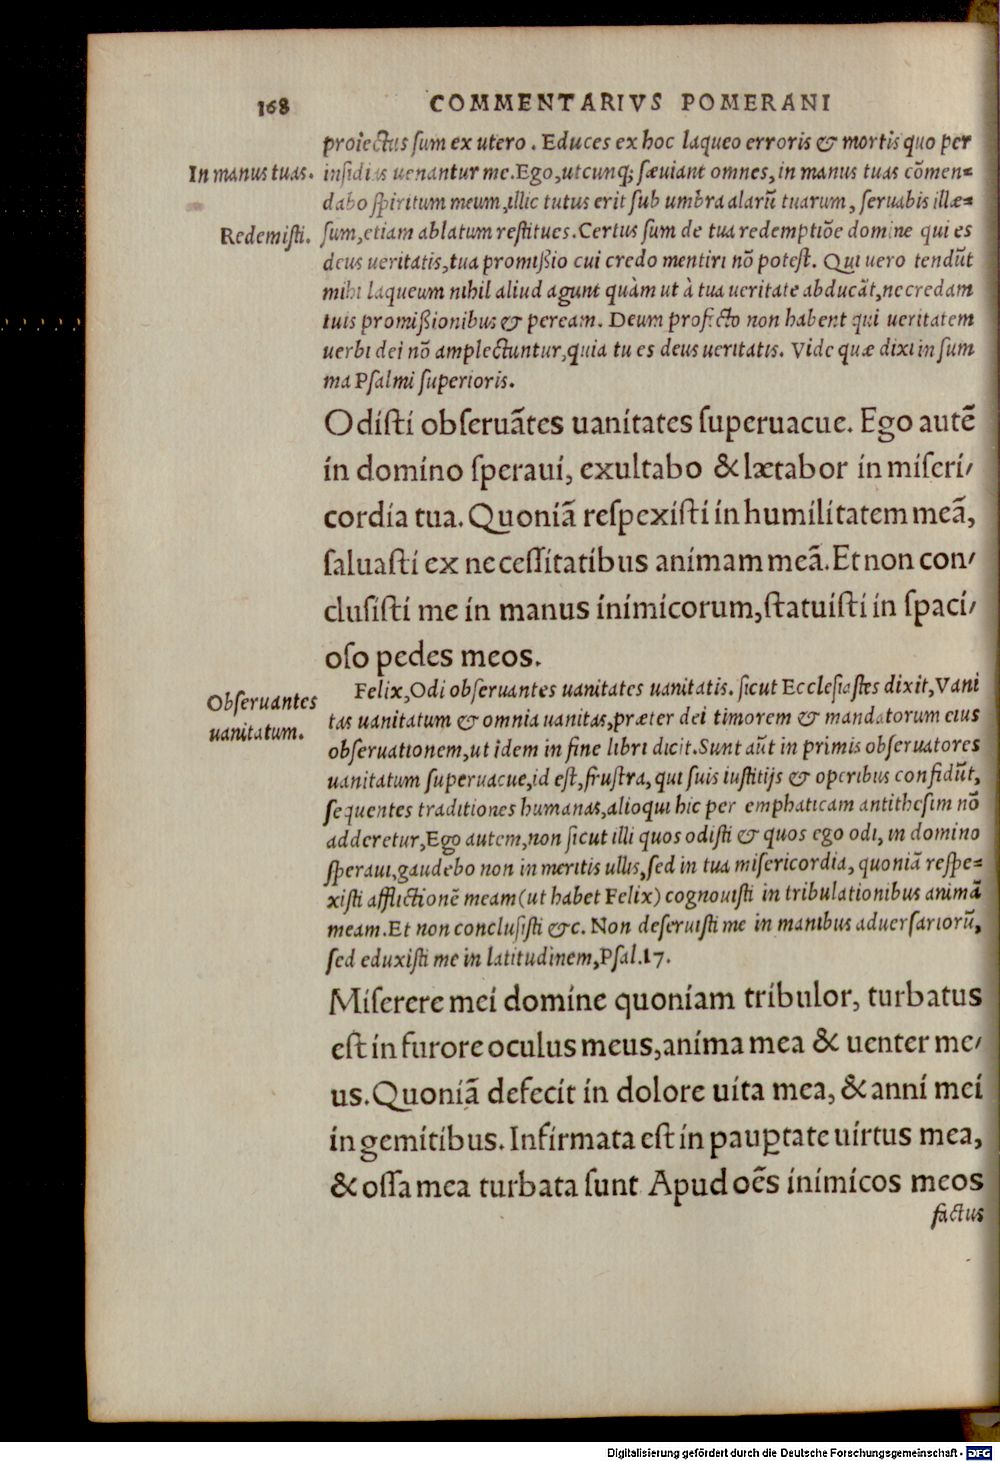 168
COMMENTARIVS POMERANI
proiectus sum ex utero. Educes ex hoc laqueo erroris & mortis quo per
In manus tuas.
insidias uenantur me. Ego, utcunq; sæuiant omnes, in manus tuas cõmen=
dabo spiritum meum, illic tutus erit sub umbra alarũ tuarum, seruabis illæ=
Redemisti.
sum, etiam ablatum restitues. Certus sum de tua redemptiõe domine qui es
deus ueritatis, tua promißio cui credo mentiri nõ potest. Qui uero tendũt
mihi laqueum nihil aliud agunt quàm ut à tua ueritate abducãt, ne credam
tuis promißionibus & peream. Deum profecto non habent qui ueritatem
uerbi dei nõ amplectuntur, quia tu es deus ueritatis. Vide quæ dixi in sum
ma Psalmi superioris.
Odisti obseruãtes uanitates superuacue. Ego autẽ
in domino speraui, exultabo & lætabor in miseri/
cordia tua. Quoniã respexisti in humilitatem meã,
saluasti ex necessitatibus animam meã. Et non con/
clusisti me in manus inimicorum, statuisti in spaci/
oso pedes meos.
Obseruantes
uanitatum.
Felix, Odi obseruantes uanitates uanitatis. sicut Ecclesiastes dixit, Vani
tas uanitatum & omnia uanitas, præter dei timorem & mandatorum eius
obseruationem, ut idem in fine libri dicit. Sunt aũt in primis obseruatores
uanitatum superuacue, id est, frustra, qui suis iustitijs & operibus confidũt,
sequentes traditiones humanas, alioqui hic per emphaticam antithesim nõ
adderetur, Ego autem, non sicut illi quos odisti & quos ego odi, in domino
speraui, gaudebo non in meritis ullis, sed in tua misericordia, quoniã respe=
xisti afflictionẽ meam (ut habet Felix) cognouisti in tribulationibus animã
meam. Et non conclusisti &c. Non deseruisti me in manibus aduersariorũ,
sed eduxisti me in latitudinem, Psal. 17.
Miserere mei domine quoniam tribulor, turbatus
est in furore oculus meus, anima mea & uenter me/
us. Quoniã defecit in dolore uita mea, & anni mei
in gemitibus. Infirmata est in paupꝑtate uirtus mea,
& ossa mea turbata sunt Apud oẽs inimicos meos
factus
Digitalisierung gefördert durch die Deutsche Forschungsgemeinschaft - DFG